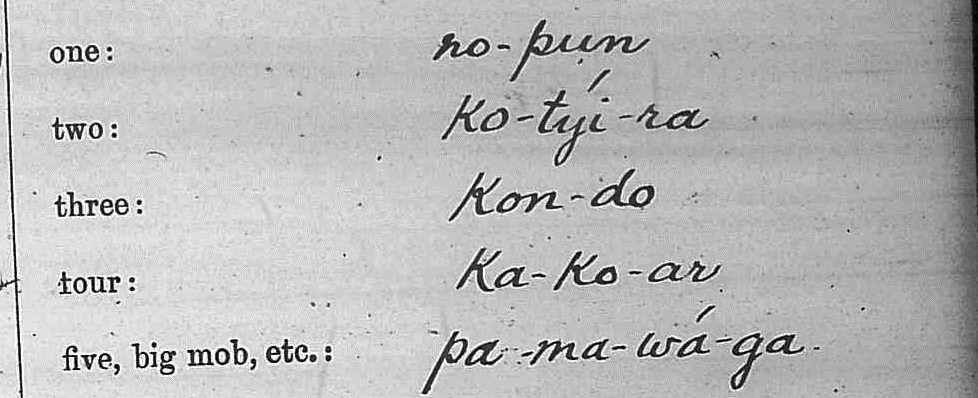 one: no-pun
two: Ko-tyí-ra
three: Kon-do
four: Ka-Ko-ar
five, big mob, etc.: pa-ma-wá-ga